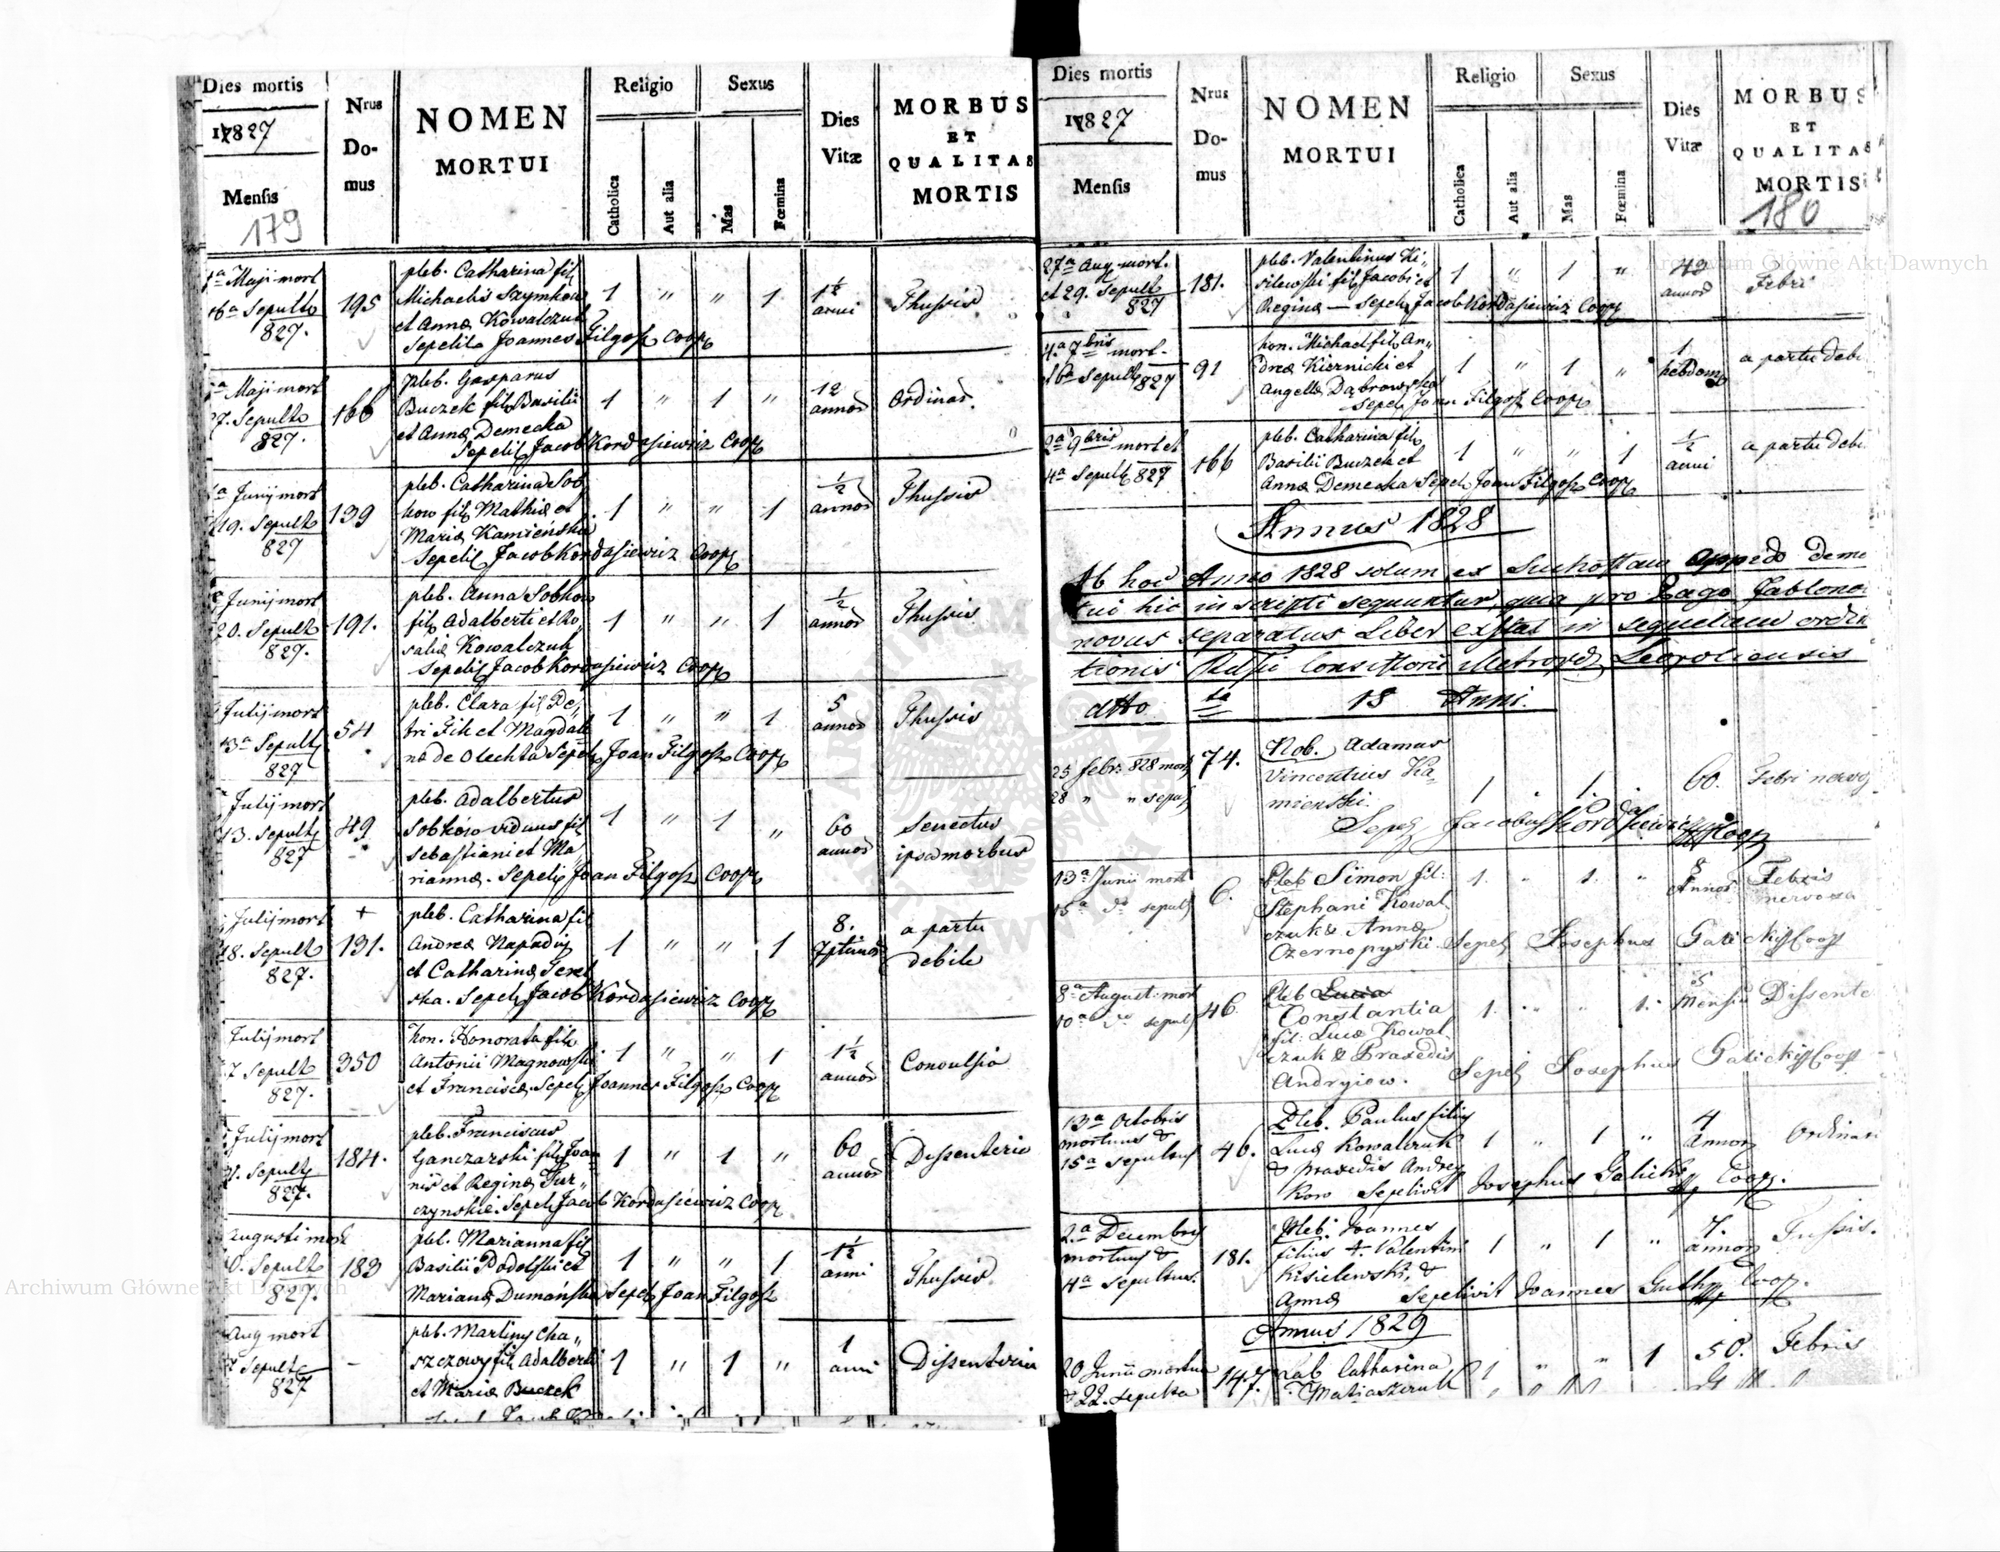 Dies mortis
1827
Mensis
179
Nrus
Do-
mus
NOMEN
MORTUI
Religio
Catholica
Aut alia
Sexus
Mas
Fœmina
Dies
Vitæ
MORBUS
ET
QUALITAS
MORTIS
Maji mort
Sepulta
827.
195
pleb. Catharina fil
Michaelis Szymków
et Anna Kowalczuk
Sepelit Joannes Filgosz Coop
1 " " 1
1½
anni
Thussis
Maji mort
27. Sepult
827.
166
pleb. Gasparus
Buczek fil Basilii
et Anna Demecka
Sepelit Jacob Kordasiewicz Coop
1 " 1 "
12
annor
Ordinar.
Junij mort
19. Sepult
827
139
pleb. Catharina Sob
kow fil Mathiæ et
Maria Kamieńska
Sepelit Jacob Kordasiewicz Coop
1 " " 1
½
annor
Thussis
Junij mort
20. Sepult
827.
191.
pleb. Anna Sobkow
fil Adalberti et Ro,,
salia Kowalczuk
Sepelit Jacob Kordasiewicz Coop
1 " " 1
½
annor
Thussis
Julij mort
13a Sepult
827
54
pleb. Clara fil Pe,,
tri Fik et Magdale
na de Olechta Sepel Joan Filgosz Coop
1 " " 1
5
annor
Thussis
Julij mort
13. Sepult
827
49
pleb. Adalbertus
Sobków viduus fil
Sebastiani et Ma
rianna. Sepel Joan Filgosz Coop
1 " 1 "
60
annor
Senectus
ipsa morbus
Julij mort
18. Sepult
827.
+
131.
pleb. Catharina fil
Andrea Napadij
et Catharina Seret
ska. Sepel Jacob Kordasiewicz Coop
1 " " 1
8.
a partu
debile
Julij mort
7 Sepult
827.
350
hon. Honorata fil
Antonii Magnowski
et Francisca Sepel Joannes Filgosz Coop
1 " " 1
1½
annor
Convulsio
Julij mort
Sepult
827.
184.
pleb. Franciscus
Ganczarski fil Joan
nis et Regina Tur,,
czynskie. Sepel Jacob Kordasiewicz Coop
1 " 1 "
60
annor
Dissenterie
Augusti mort
Sepult
827.
183
pleb. Marianna fil
Basilii Podolski et
Mariana Dumańska Sepel Joan Filgosz
1 " " 1
1½
anni
Thussis
Aug mort
Sepult
827
-
pleb. Martiny Cha,,
szczowy fil Adalberti
et Maria Buczek
1 " 1 "
1
anni
Dissenteria
Dies mortis
1827
Mensis
Nrus
Do-
mus
NOMEN
MORTUI
Religio
Catholica
Aut alia
Sexus
Mas
Fœmina
Dies
Vitæ
MORBUS
ET
QUALITAS
MORTIS
180
27a Aug mort.
et 29. Sepult
827
181.
pleb. Valentinus Ki,,
silewski fil Jacobi et
Regina — Sepel Jacob Kordasiewicz Coop
1 " 1 "
annor
Febri
4a 7bris mort.
6a Sepult 827
91
hon. Michael fil An,,
drea Kiernicki et
Angella Dąbrowska
Sepel Joan Filgosz Coop
1 " 1 "
1
hebdom
a partu debi
2a 9bris mort et
4a Sepult 827
166
pleb. Catharina fil
Basilii Buczek et
Anna Demecka Sepel Joan Filgosz Coop
1 " " 1
½
anni
a partu debi
Annus 1828
Ab hoc Anno 1828 solum ex Suchostaw oppido demo
tui hic inscripti sequuntur, quia pro Pago Jablono
novus separatus Liber exstat in sequelam ordin
tionis Rssi Consistorii Metropol Leopoliensis
dtto 18 Anni.
25 febr. 828 mort
28 " " sepul
74.
Nob. Adamus
Vincentius Ka
mienski.
Sepel Jacobus Kordasiewicz Coop
1 1.
60.
Febri nervo
13a Junii mort
15a do sepult
6.
Pleb Simon fil:
Stephani Kowal
czuk & Anna
Czernopyski Sepel Josephus Galicki Coop
1. " 1. "
8
Annor
Febris
nervosa
8a August. mort
10a do sepult
46
Pleb Lucia
Constantia
fil: Luca Kowal
czuk & Praxedis
Andryiow. Sepel Josephus Galicki Coop
1. " " 1.
5
Mensiu
Dissente
13a Octobris
mortuus &
15a sepultus
46.
Pleb. Paulus filiy
Luca Kowalczuk
& Praxedis Andry
kow Sepelivit Josephus Galicki Coop.
1 " 1 "
4
annor
Ordinari
2a Decembris
mortuus &
4a sepultus.
181.
Pleb. Joannes
filius + Valentini
Kisielewski, &
Anna Sepelivit Joannes Guth Coop.
1 " 1 "
7.
annor
Tussis.
Annus 1829
20 Junii mortua
& 22. sepulta
147.
Lab Catharina
Matiaszczuk
1 " " 1
50.
Febris
Archiwum Główne Akt Dawnych
Archiwum Główne Akt Dawnych
ARCHIWUM GŁÓWNE AKT DAWNYCH